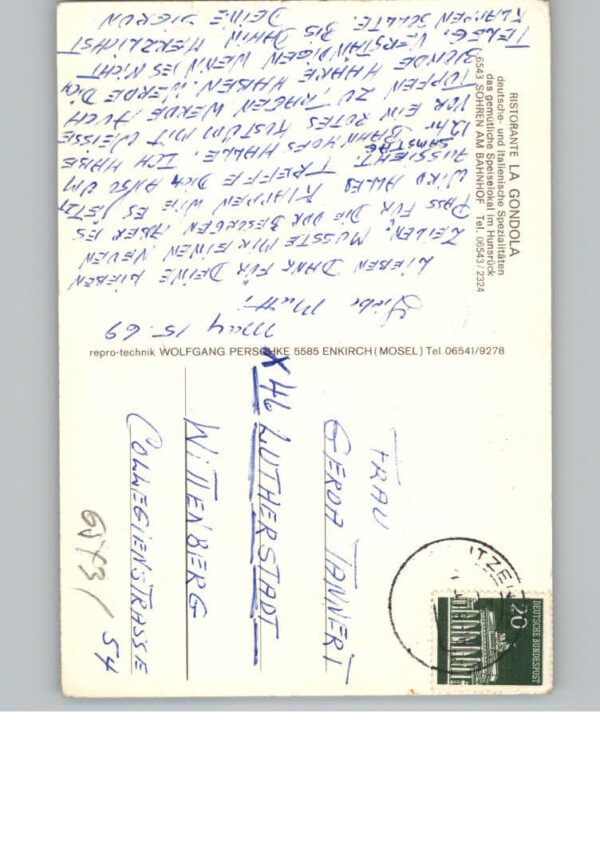 RISTORANTE LA GONDOLA
deutsche- und italienische Spezialitäten
das gemütliche Speiselokal im Hunsrück
6543 SOHREN AM BAHNHOF Tel. 06543/2324
May 15. 69
Liebe Mutti!
LIEBEN DANK FÜR DEINE LIEBEN
ZEILEN. MUSSTE MIR EINEN NEUEN
PASS FÜR DIE DDR BESORGEN. ABER ES
WIRD ALLES KLAPPEN, WIE ES JETZT
AUSSIEHT. TREFFE DICH ALSO UM
SAMSTAG
12 hr BAHNHOFSHALLE. ICH HABE
VOR EIN ROTES KOSTÜM MIT WEISSE
TUPFEN ZU TRAGEN WERDE AUCH
BLONDE HAARE HABEN. WERDE DICH
TELEG. VERSTÄNDIGEN WENN ES NICHT
KLAPPEN SOLLTE. BIS DAHIN HERZLICHST
DEINE SIGRUN
repro-technik WOLFGANG PERSCHKE 5585 ENKIRCH (MOSEL) Tel. 06541/9278
FRAU
GERDA TANNERT
X 46 LUTHERSTADT
WITTENBERG
COLLEGIENSTRASSE
54
6543/
ITZEN
20
DEUTSCHE BUNDESPOST